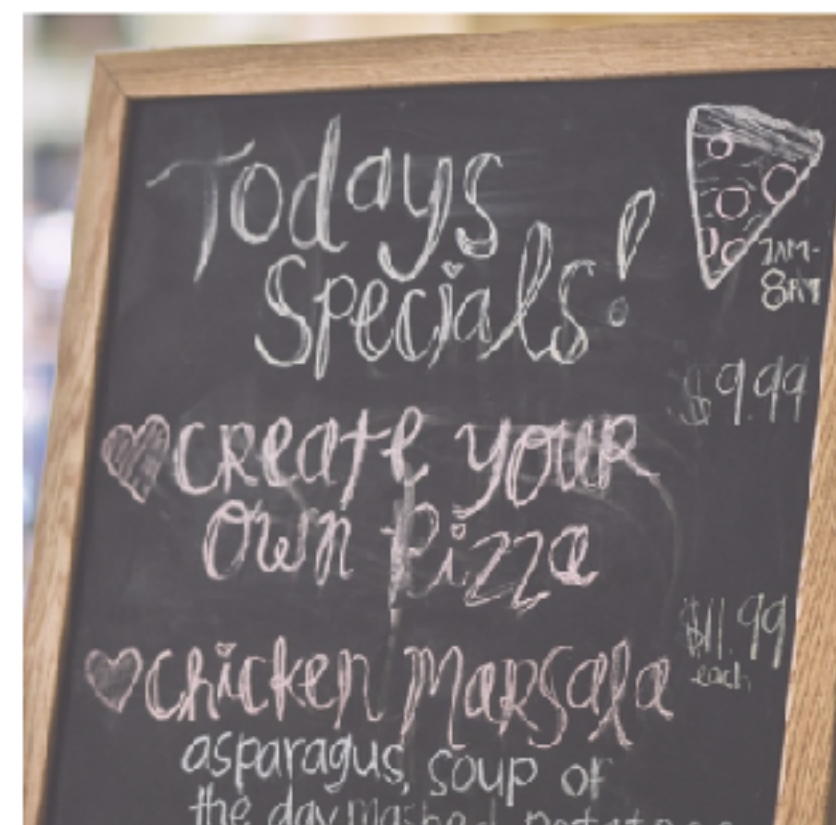 Todays
Specials!
7AM-
8PM
$9.99
create your
own Pizza
$11.99
each
chicken Marsala
asparagus, soup of
the day, mashed potatoes